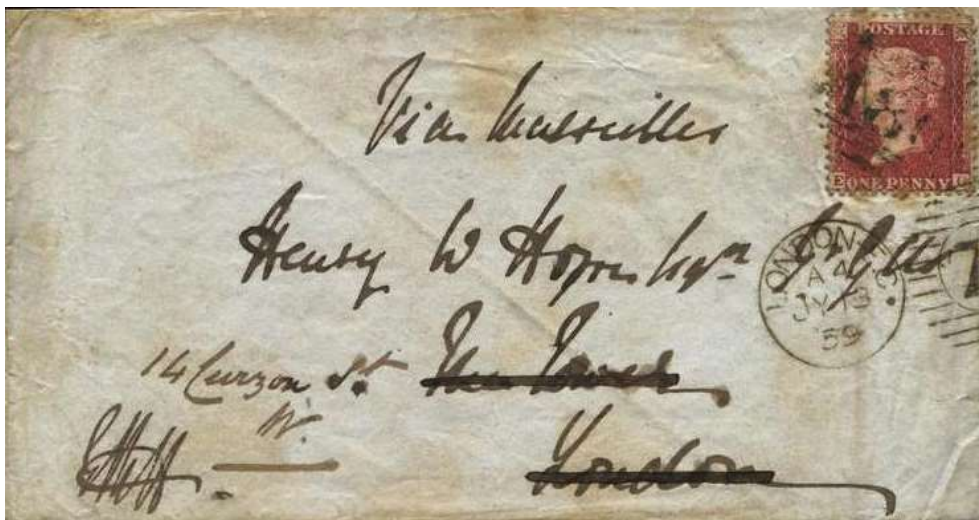 POSTAGE
ONE PENNY
Via Marseilles
Henry W Hope Esqre G. Gds
LONDON E.C.
A 4
JY 18
59
14 Curzon St The Tower
W.
London